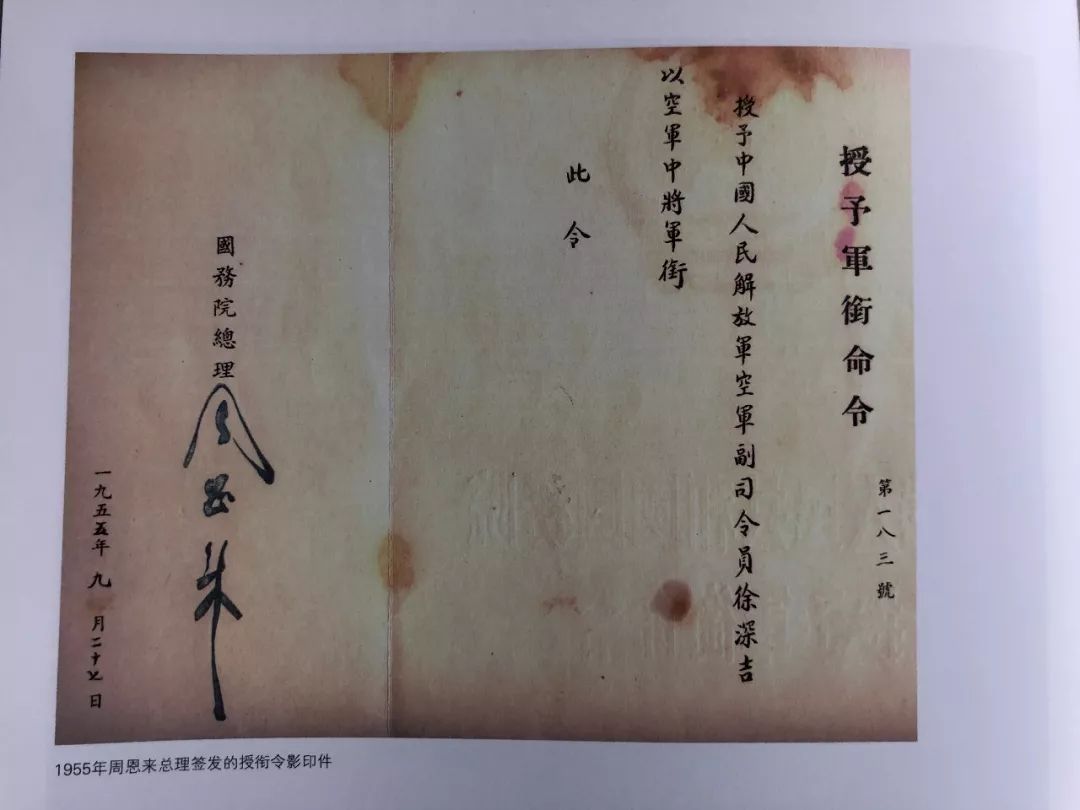 授予軍銜命令
第一八三號
授予中國人民解放軍空軍副司令員徐深吉
以空軍中將軍銜
此令
國務院總理
周恩来
一九五五年九月二十七日
1955年周恩来总理签发的授衔令影印件